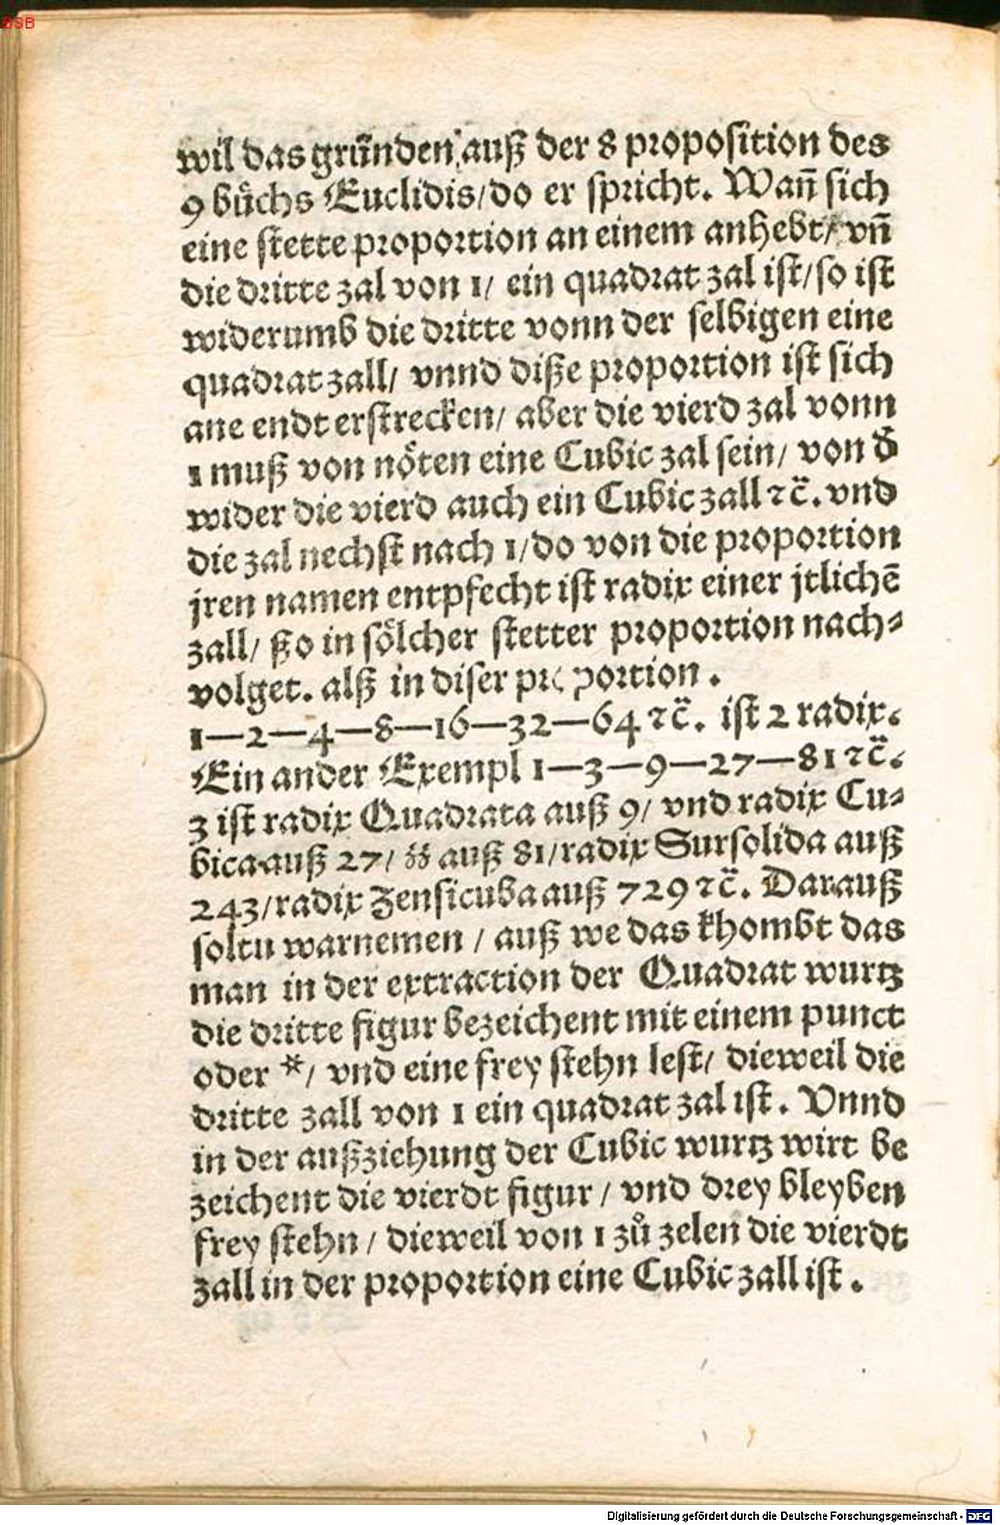 BSB
wil das grůnden auß der 8 proposition des
9 bůchs Euclidis/do er spricht. Wañ sich
eine stette proportion an einem anhebt/ vñ
die dritte zal von 1/ ein quadrat zal ist/so ist
widerumb die dritte vonn der selbigen eine
quadrat zall/ vnnd diße proportion ist sich
ane endt erstrecken/ aber die vierd zal vonn
1 muß von nöten eine Cubic zal sein/ von d̄
wider die vierd auch ein Cubic zall ⁊c̄. vnd
die zal nechst nach 1/do von die proportion
jren namen entpfecht ist radix einer jtlichē
zall/ ßo in sölcher stetter proportion nach⸗
volget. alß in diser proportion.
1—2—4—8—16—32—64 ⁊c̄. ist 2 radix.
Ein ander Exempl 1—3—9—27—81 ⁊c̄.
3 ist radix Quadrata auß 9/ vnd radix Cu⸗
bica auß 27/ zz auß 81/radix Sursolida auß
243/radix Zensicuba auß 729 ⁊c̄. Darauß
soltu warnemen / auß we das khombt das
man in der extraction der Quadrat wurtz
die dritte figur bezeichent mit einem punct
oder */ vnd eine frey stehn lest/ dieweil die
dritte zall von 1 ein quadrat zal ist. Vnnd
in der außziehung der Cubic wurtz wirt be
zeichent die vierdt figur / vnd drey bleyben
frey stehn / dieweil von 1 zů zelen die vierdt
zall in der proportion eine Cubic zall ist.
Digitalisierung gefördert durch die Deutsche Forschungsgemeinschaft - DFG